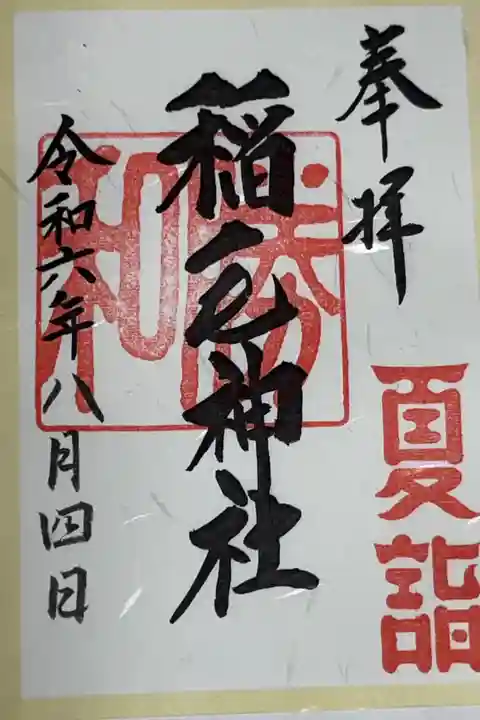 奉拝
夏詣
稲毛神社
勝和
令和六年八月四日